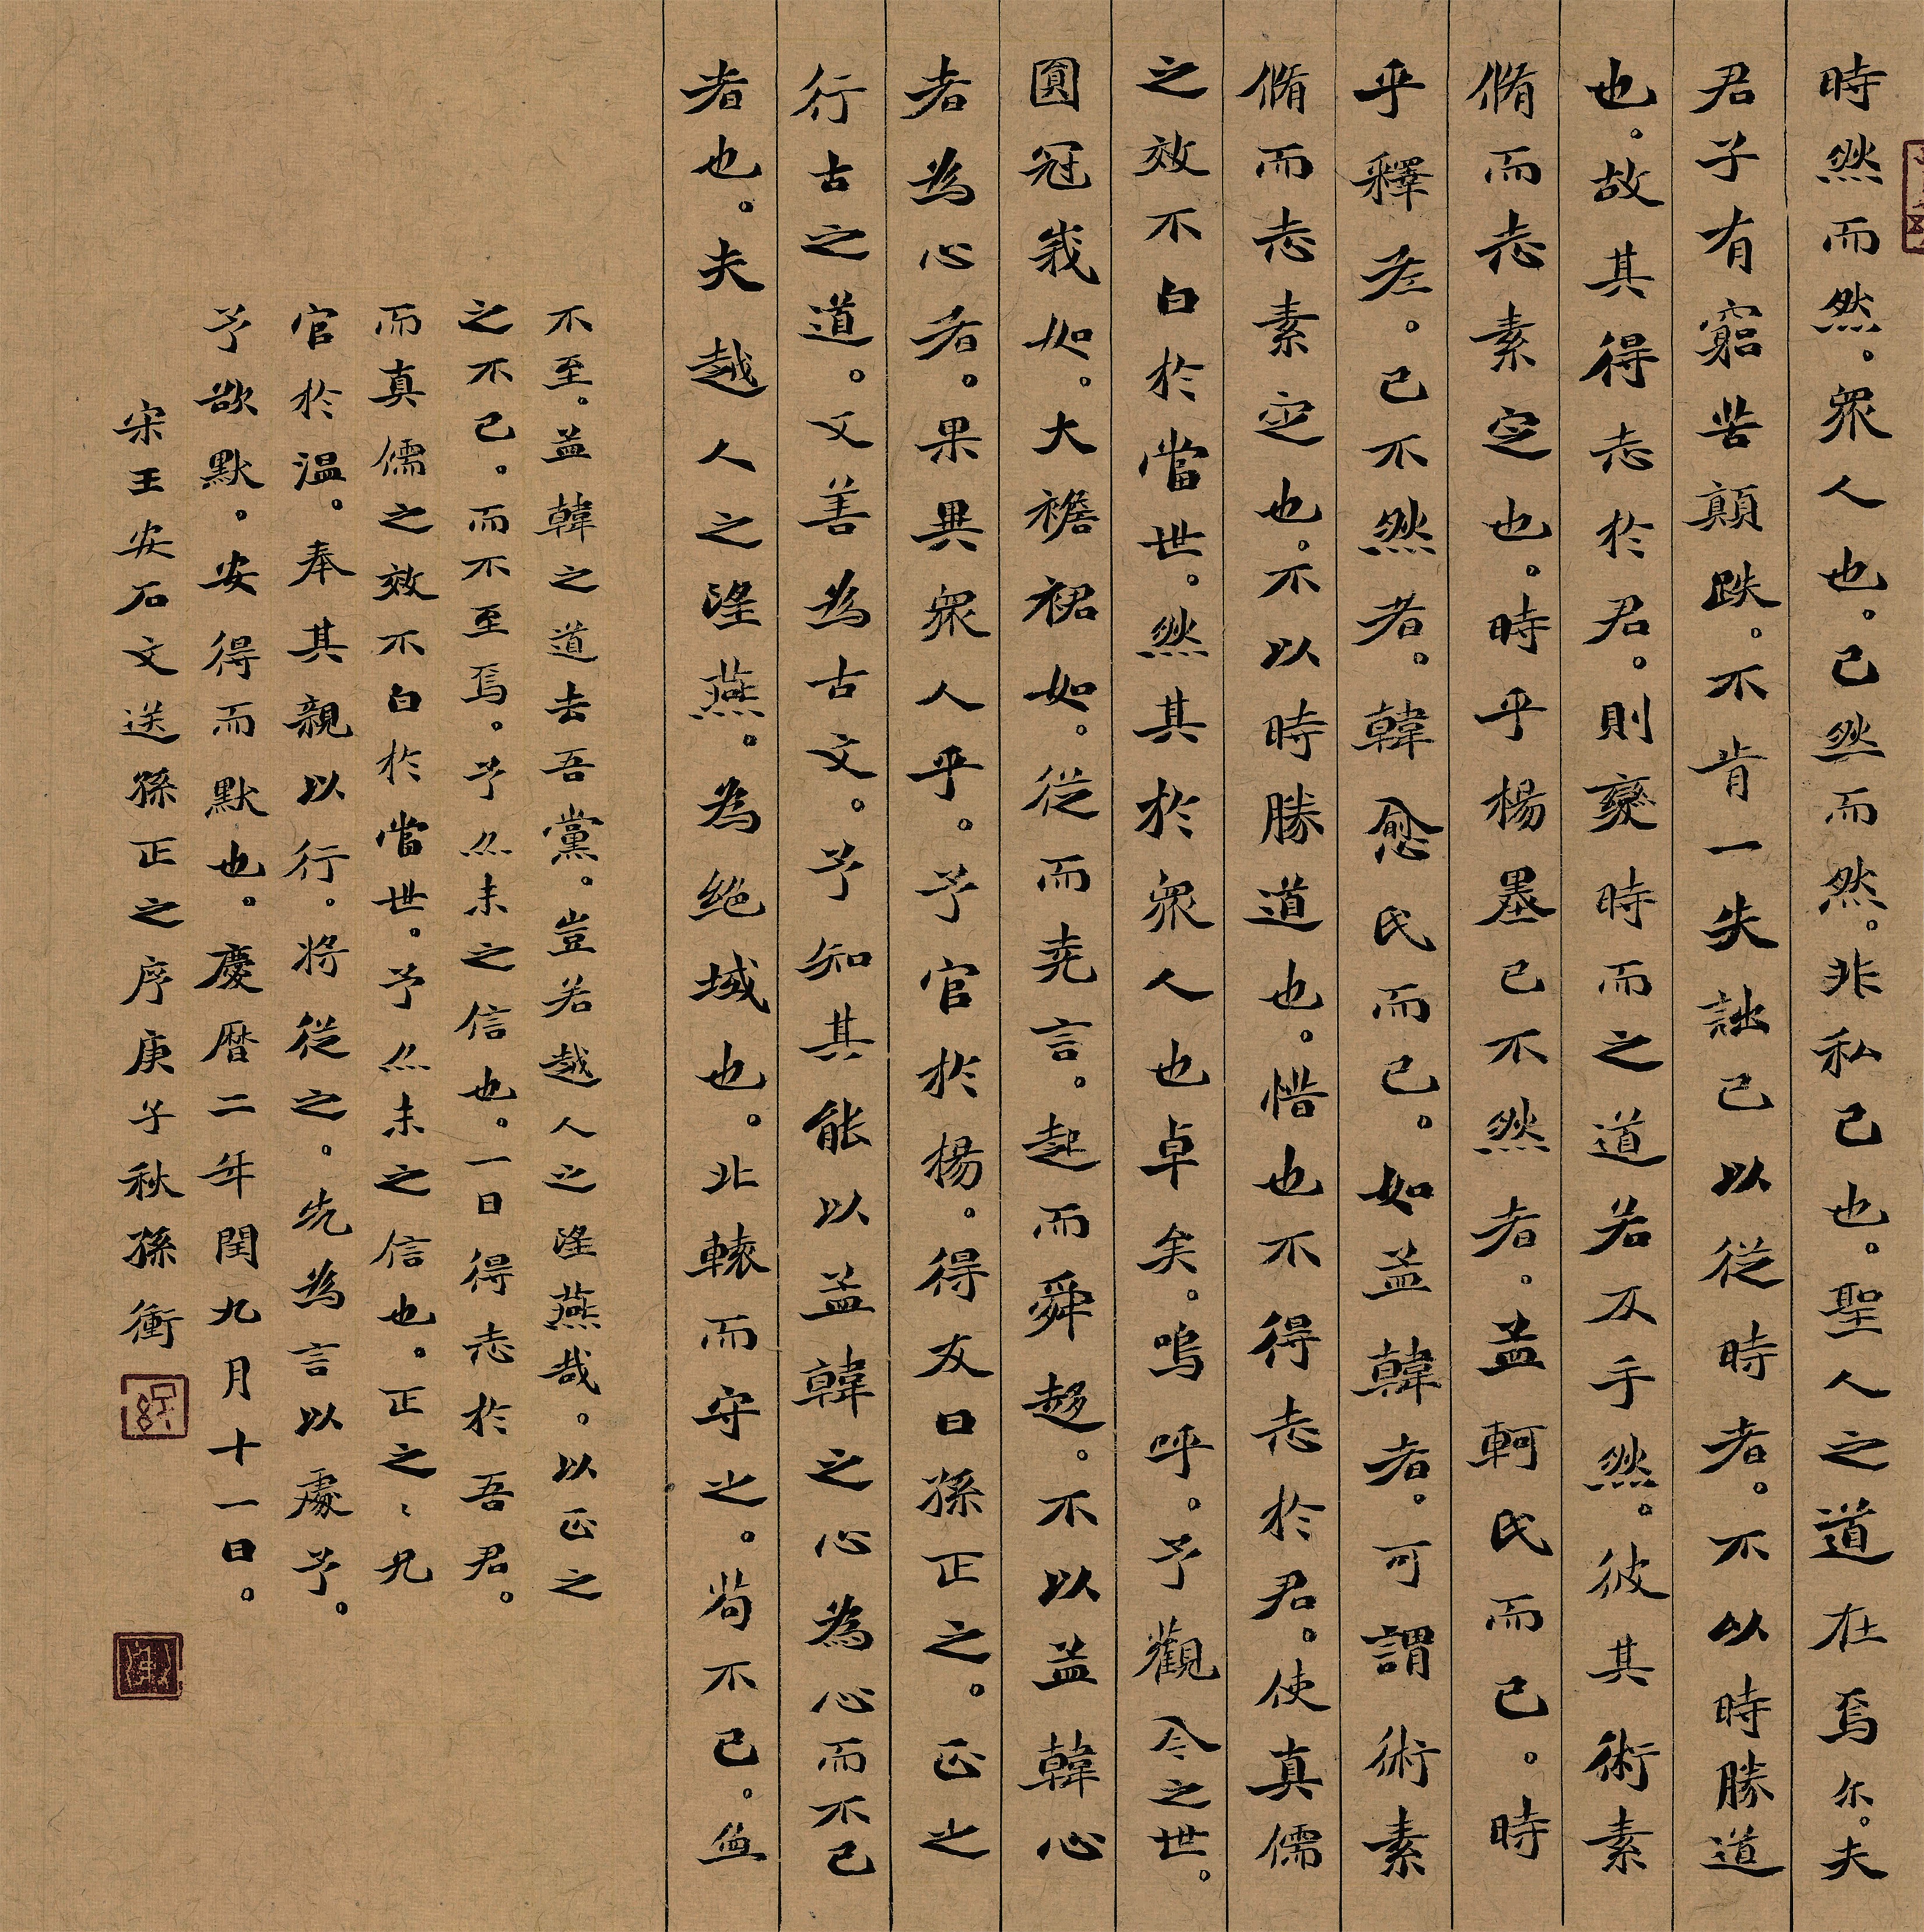 時然而然。衆人也。己然而然。非私己也。聖人之道在焉尔。夫
君子有窮苦顛跌。不肯一失詘己以從時者。不以時勝道
也。故其得志於君。則變時而之道若反手然。彼其術素
脩而志素定也。時乎楊墨己不然者。孟軻氏而已。時
乎釋老。己不然者。韓愈氏而已。如孟韓者。可謂術素
脩而志素定也。不以時勝道也。惜也不得志於君。使真儒
之效不白於當世。然其於衆人也卓矣。嗚呼。予觀今之世。
圓冠峩如。大襜裙如。從而堯言。起而舜趍。不以孟韓心
者為心者。果異衆人乎。予官於楊。得友曰孫正之。正之
行古之道。又善為古文。予知其能以孟韓之心為心而不已
者也。夫越人之望燕。為絶域也。北轅而守之。茍不已。無
不至。孟韓之道去吾黨。豈若越人之望燕哉。以正之
之不已。而不至焉。予亦未之信也。一日得志於吾君。
而真儒之效不白於當世。予亦未之信也。正之之兄
官於温。奉其親以行。将從之。先為言以處予。
予欲默。安得而默也。慶曆二年閏九月十一日。
宋王安石文送孫正之序庚子秋孫衝